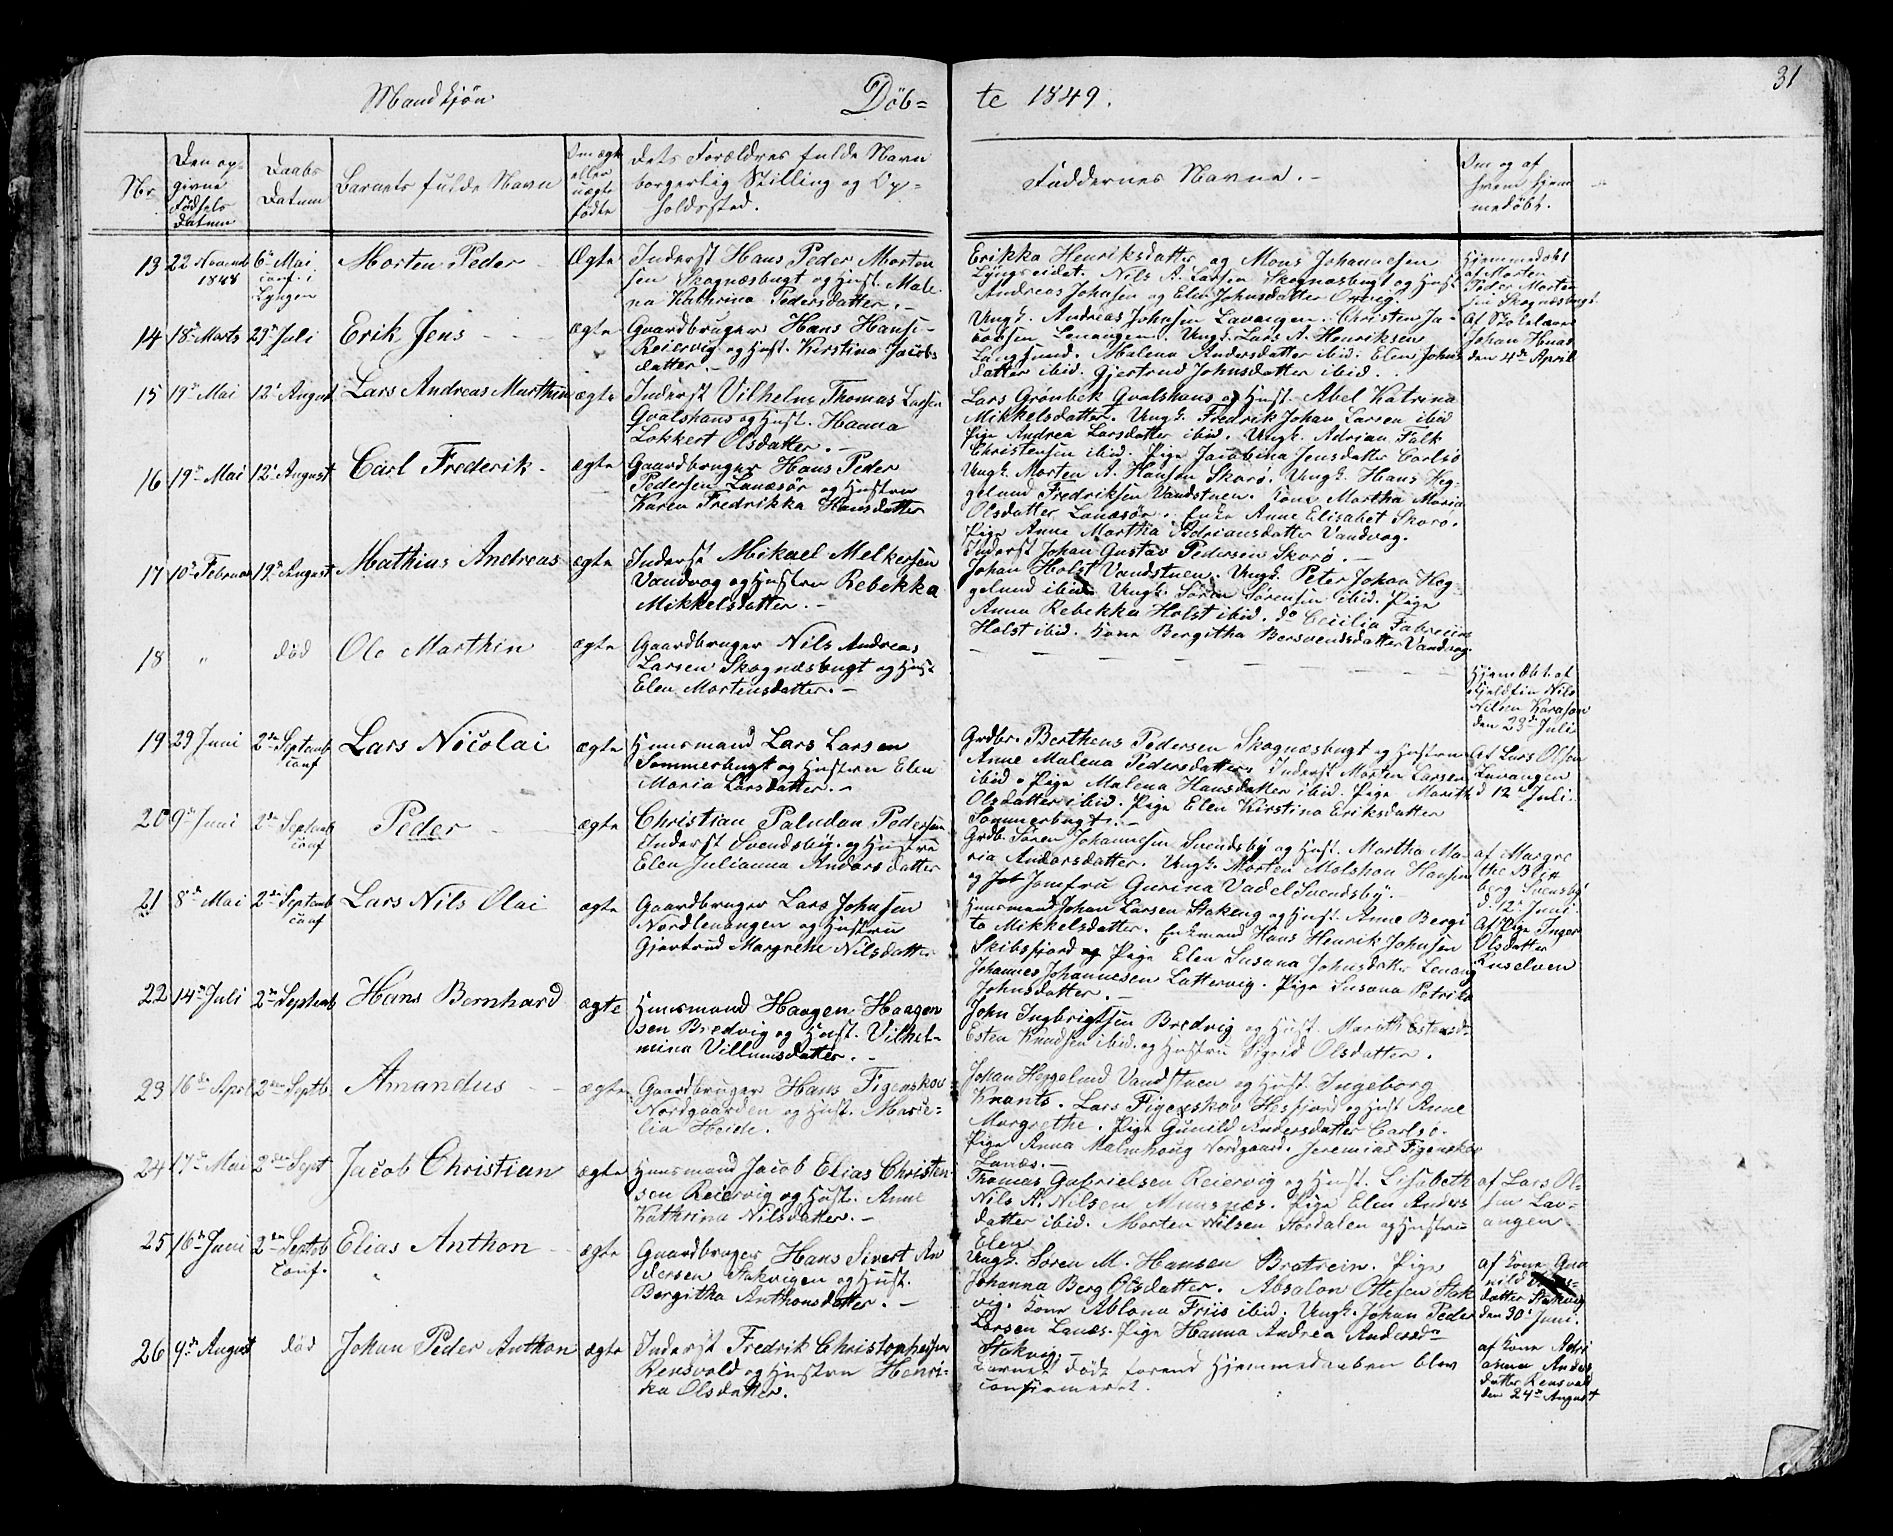 Mandkjøn
Døb= te 1849.
31
Nr.
Den op-
givne
Fødsels
Datum
Daabs
Datum
Barnets fulde Navn
Om ægte
eller
uægte
fødte
Dets Forældres fulde Navn
borgerlig Stilling og Op-
holdssted.
Faddernes Navne.
Om og af
hvem hjem
medøbt.
13 22 Novemb
1848
6te Mai
conf. i
Lyngen
Morten Peder
Ægte
Inderst Hans Peder Morten
sen Skognæsbugt og Hust. Male
na Kathrina Pedersdatter.
Erikka Henriksdatter og Mons Johannesen
Lyngseidet. Nils A. Larsen Skognæsbugt og Hust
Andreas Johnsen og Elen Johnsdatter
Hjemmedøbt
af Morten
Peder Morten
sen Skognæsbugt
14 18de Marts 29de Juli
Erik Jens
ægte
Gaardbruger Hans Hansen
Reiervig og Hust. Kirstina Jacobs
datter.
Ungk. Andreas Johnsen Lavangen. Christen Ja-
cobsen Lenangen. Ungk. Lars A. Henriksen
Langsund. Malena Andersdatter ibid. Elen Johns
datter ibid. Gjertrud Johnsdatter ibid.
Af Skolelærer
Johan
den 4de April
15 19de Mai 12te August
Lars Andreas Marthin
ægte
Inderst Vilhelm Thomas Larsen
Gvalshaus og Hust. Hanna
Lokkert Olsdatter.
Lars Grønbek Gvalshaus og Hust. Abel Katrina
Mikkelsdatter. Ungk. Fredrik Johan Larsen ibid
Pige Andrea Larsdatter ibid. Ungk. Adrian Falk
Christensen ibid. Pige Jacobina Jensdatter Carlsø
16 19de Mai 12te August
Carl Frederik
ægte
Gaardbruger Hans Peder
Pedersen Lanæsør og Hustru
Karen Fredrikka Hansdatter
Ungk. Morten A. Hansen Skorø. Ungk. Hans Heg-
gelund Fredriksen Vandstuen. Kone Martha Maria
Olsdatter Lanæsør. Enke Anne Elisabet Skorø.
Pige Anne Martha Adriansdatter Vandvag.
Inderst Johan Gustav Pedersen Skorø.
17 10de Februar 19de August
Mathias Andreas
ægte
Inderst Mikael Melkersen
Vandvag og Hustru Rebekka
Mikkelsdatter.
Johan Holst Vandstuen. Ungk. Peter Johan Heg-
gelund ibid. Ungk. Søren Sørensen ibid. Pige
Anna Rebekka Holst ibid. do Cecilia Fabricius
Holst ibid. Kone Bergitha Bersvendsdatter Vandvag
18 " død
Ole Marthin
ægte
Gaardbruger Nils Andreas
Larsen Skognæsbugt og Hust
Elen Mortensdatter.
Hjemdøbt af
Nils
Nilsen
den 23de Juli
19 29 Juni 2den Septemb
conf
Lars Nicolai
ægte
Huusmand Lars Larsen
Sommerbugt og Hustru Elen
Maria Larsdatter.
Grdbr. Berthens Pedersen Skognæsbugt og Hustru
Anne Malena Pedersdatter. Inderst Morten Larsen
ibid. Pige Malena Hansdatter ibid. Pige Marith
Olsdatter ibid. Pige Elen Kirstina Eriksdatter
Sommerbugt.
Af Lars Olsen
Lavangen
d 12te Juli.
20 9de Juni 2den Septemb
conf
Peder
ægte
Christian Paludan Pedersen
Inderst Svendsbÿ. og Hustru
Elen Julianna Andersdatter
Grdb. Søren Johannesen Svendsby og Hust. Martha Ma-
ria Andersdatter. Ungk. Morten Hansen
og Jomfru Gurina Vadel Svendsbÿ.
af Margre
the Blix
berg Svensbÿ
d 12te Juni.
21 8de Mai 2den Septemb
conf
Lars Nils Olai
ægte
Gaardbruger Lars Johnsen
Nordlenangen og Hustru
Gjertrud Margrethe Nilsdatter
Huusmand Johan Larsen Stakeng og Hust. Anne Bergi
ta Mikkelsdatter. Enkmand Hans Henrik Johnsen
Skibsfjord og Pige Elen Susana Johnsdatter Lenang
Johannes Johannesen Lattervig. Pige Susana Petrika
Johnsdatter.
Af Pige Inger
Olsdatter
Kuselven
22 14de Juli 2den Septemb
Hans Bernhard
ægte
Huusmand Haagen Haagen
sen Bredvig og Hust. Vilhel-
mina Villumsdatter.
John Ingbrigtsen Bredvig og Hust. Marith Estensd-
Esten Knudsen ibid. og Hustru Sigrid Olsdatter.
23 16de April 2den Septb.
Amandus
ægte
Gaardbruger Hans Figenskov
Nordgaarden og Hust. Marie-
lia Heide.
Johan Heggelund Vandstuen og Hust. Ingeborg
Krants. Lars Figenskov Hesfjord og Hust Anne
Margrethe. Pige Gunild Andersdatter Carlsø.
Pige Anna Malmhoug Nordgaard. Jeremias Figenskov
Lanæs.
24 17de Mai 2den Sept
Jacob Christian
ægte
Huusmand Jacob Elias Christen
sen Reiervig og Hust. Anne
Kathrina Nilsdatter.
Thomas Gabrielsen Reiervig og Hust. Lisabeth
Nils N. Nilsen Munsnæs. Pige Elen Anders
datter ibid. Morten Nilsen Stordalen og Hustru
Elen
af Lars Ol-
sen Lav-
angen
25 16de Juni 2den Septb
Conf.
Elias Anthon
ægte
Gaardbruger Hans Sivert An
dersen Stakvigen og Hust.
Bergitha Anthonsdatter.
Ungk. Søren M. Hansen Bratrein. Pige
Johanna Berg Olsdatter. Absalon Ottesen Stak
vig. Kone Ablona Friis ibid. Ungk. Johan Peder
Larsen Lanæs. Pige Hanna Andrea Andersdr
Stakvig.
af Kone Gun
nild
datter Stakvig
den 30te Juni.
26 9de August død
Johan Peder Anthon
ægte
Inderst Fredrik Christophersen
Rensvold og Hustru Henri-
ka Olsdatter.
Barnet døde forend Hjemmedaaben blev
confirmeret.
af Kone Adri
asma Anders
datter Rensvold
den 24de August